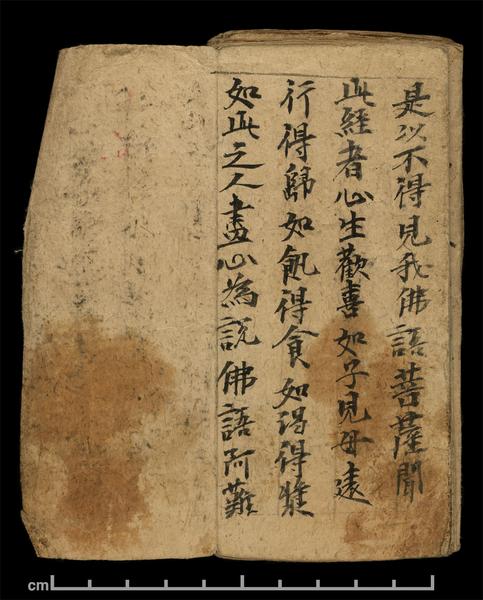 是以不得見我佛語菩薩聞
此経者心生歡喜如子見母遠
行得歸如飢得食如渴得漿
如此之人盡心為說佛語阿難
cm